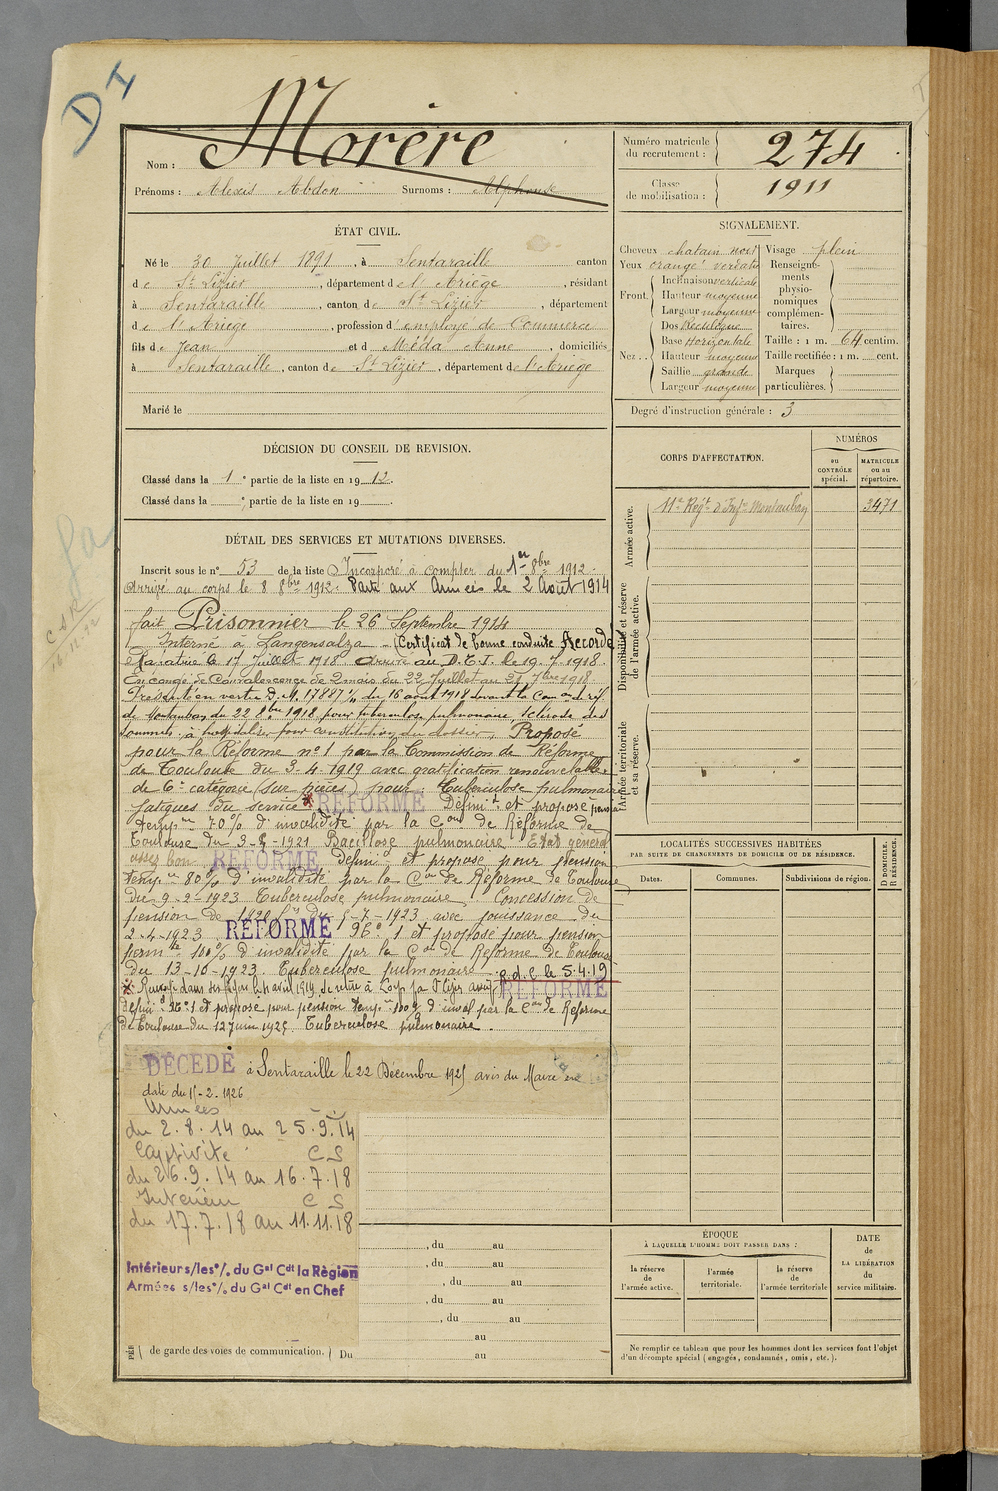 D I
Nom : Morère
Prénoms : Alexis Abdon Surnoms : Alphonse
Numéro matricule du recrutement : 274
Classe de mobilisation : 1911
ÉTAT CIVIL.
Né le 30 Juillet 1891, à Sentaraille canton
de St Lizier, département de l'Ariège, résidant
à Sentaraille, canton de St Lizier, département
de l'Ariège, profession d'employé de Commerce
fils de Jean et de Méda Anne, domiciliés
à Sentaraille, canton de St Lizier, département de l'Ariège
Marié le
SIGNALEMENT.
Cheveux chatain noir
Yeux orangé verdatre
Front. Inclinaison verticale
Hauteur moyenne
Largeur moyenne
Nez . . Dos Rectiligne
Base Horizontale
Hauteur moyenne
Saillie grande
Largeur moyenne
Visage plein
Renseignements physionomiques complémentaires.
Taille : 1 m. 64 centim.
Taille rectifiée : 1 m. cent.
Marques particulières.
Degré d'instruction générale : 3
DÉCISION DU CONSEIL DE REVISION.
Classé dans la 1e partie de la liste en 1912.
Classé dans la e partie de la liste en 19 .
CORPS D'AFFECTATION.
NUMÉROS
au CONTRÔLE spécial.
MATRICULE ou au répertoire.
Armée active.
11e Régt d'Infie Montauban 3471
Disponibilité et réserve de l'armée active.
Armée territoriale et sa réserve.
DÉTAIL DES SERVICES ET MUTATIONS DIVERSES.
Inscrit sous le n° 53 de la liste Incorporé à compter du 1er 8bre 1912.
Arrivé au corps le 8 8bre 1912. Parti aux Armées le 2 Août 1914
fait Prisonnier le 26 Septembre 1914
Interné à Langensalza - (Certificat de bonne conduite Accordé)
Rapatrié le 17 Juillet 1918. Arrivé au D.T.I. le 19.7.1918.
En congé de Convalescence de 2 mois du 22 Juillet au 21 7bre 1918
Présenté en vertu D.M. 17887 du 16 août 1918 devant la Comon de réf
de Montauban du 22 8bre 1918 pour tuberculose pulmonaire, sclérose des
sommets, à hospitaliser pour constitution du dossier, Proposé
pour la Réforme n°1 par la Commission de Réforme
de Toulouse du 3-4-1919 avec gratification renouvelable
de 6e catégorie sur pièces pour : Tuberculose pulmonaire
fatigues du service * RÉFORMÉ Définit et proposé pension
tempre 70% d'invalidité par la Con de Réforme de
Toulouse du 1921 Bacillose pulmonaire Etat général
assez bon RÉFORMÉ défini et proposé pour pension
tempre 80% d'invalidité par la Con de Réforme de Toulouse
du 9-2-1923 Tuberculose pulmonaire. Concession de
pension de 1920 frs du 5-7-1923 avec jouissance du
2-4-1923. RÉFORMÉ N°1 et proposé pour pension
perm te 100% d'invalidité par la Con de Réforme de Toulouse
du 13-10-1923. Tuberculose pulmonaire r.d.c le 5.4.19
* Renvoyé dans ses foyers le 4 avril 1919. Se retire à RÉFORMÉ
défini N°1 et proposé pour pension temp. 100% d'inval par la Con de Réforme
de Toulouse du 12 juin 1925. Tuberculose pulmonaire.
DÉCÉDÉ à Sentaraille le 22 Décembre 1925 avis du Maire en
date du 15-2-1926
Armées
du 2.8.14 au 25.9.14
Captivité CS
du 26.9.14 au 16.7.18
Intérieur CS
du 17.7.18 au 11.11.18
Intérieurs s/les°/. du Gal Cdt la Région
Armées s/les°/. du Gal Cdt en Chef
, du au
, du au
, du au
, du au
, du au
au
PÉR
de garde des voies de communication. Du au
LOCALITÉS SUCCESSIVES HABITÉES
PAR SUITE DE CHANGEMENTS DE DOMICILE OU DE RÉSIDENCE.
Dates. Communes. Subdivisions de région. D DOMICILE. R RÉSIDENCE.
ÉPOQUE
À LAQUELLE L'HOMME DOIT PASSER DANS :
la réserve de l'armée active.
l'armée territoriale.
la réserve de l'armée territoriale
DATE de LA LIBÉRATION du service militaire.
Ne remplir ce tableau que pour les hommes dont les services font l'objet
d'un décompte spécial (engagés, condamnés, omis, etc.).